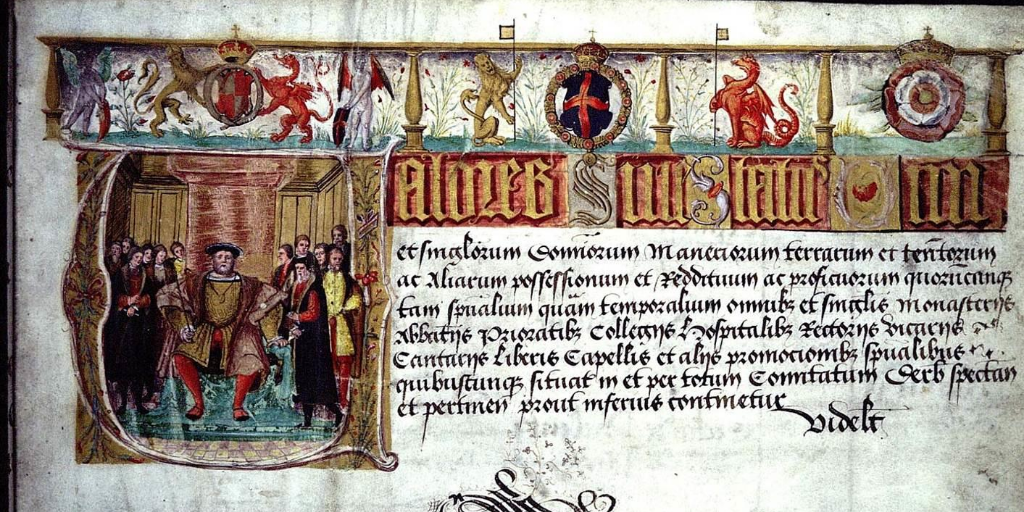 Valores Siue Status Omni
et singlorum Domiorum Maneriorum terrarum et tentorum
ac Aliarum possessionum et Reddituum ac proficuorum quorumcunqz
tam spualium quam temporalium omnibz et singlis monasterijs
Abbatijs Prioratibz Collegijs Hospitalibz Rectorijs vicarijs
Cantarijs Liberis Capellis et alijs promocionibz spualibus
quibuscunqz situat in et per totum Comitatum Derb spectan
et pertinen prout inferius continetur
Videlt